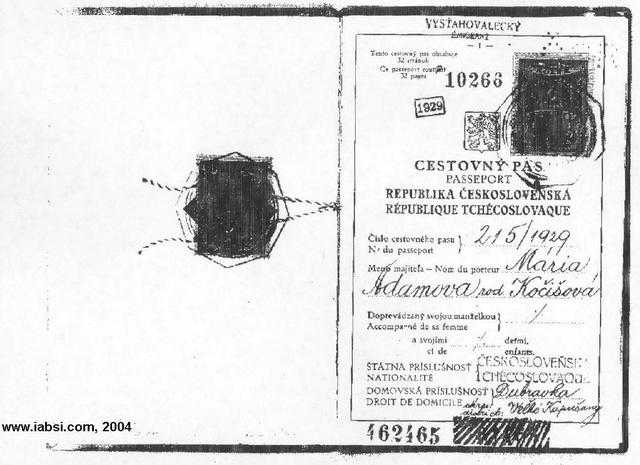 VYSŤAHOVALECKÝ
— 1 —
Tento cestovný pas obsahuje
32 stránok
Ce passeport contient
32 pages
10266
1929
CESTOVNÝ PAS
PASSEPORT
REPUBLIKA ČESKOSLOVENSKÁ
RÉPUBLIQUE TCHÉCOSLOVAQUE
Číslo cestovného pasu 215/1929
No du passeport
Meno majiteľa – Nom du porteur Mária
Adamova rod Kočišová
Doprevádzaný svojou manželkou
Accompagné de sa femme
a svojimi deťmi,
et de enfants.
ŠTÁTNA PRÍSLUŠNOSŤ ČESKOSLOVENSK
NATIONALITÉ TCHÉCOSLOVAQUE
DOMOVSKÁ PRÍSLUŠNOSŤ Dubravka
DROIT DE DOMICILE okres Velké Kapušany
462465
www.iabsi.com, 2004